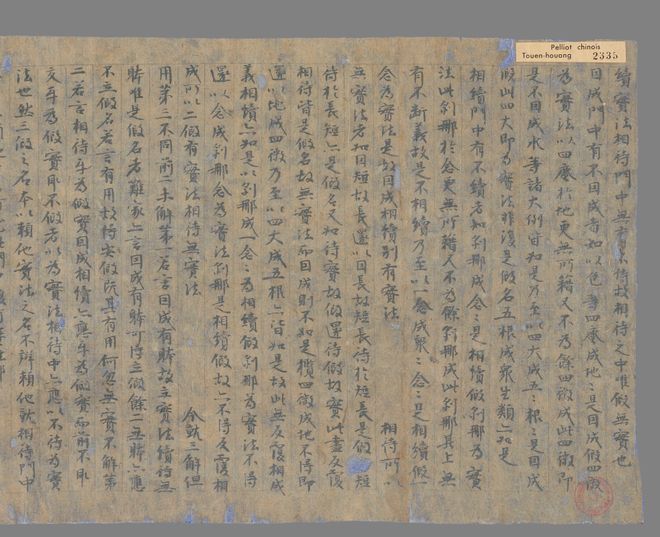 Pelliot chinois
Touen-houang 2335
續實法相待門中無有待故相待之中唯假無實也
因成門中有不因成者如以色等四塵成地〻是因成假四微
為實法以四塵於地更無所藉又不為餘四微成此四微即
是不因成水等諸大例皆如是乃至以四大成五〻根〻是因成
假此四大即為實法非復是假名五根成衆生類亦如是
相續門中有不續者如刹那成念〻是相續假刹那為實
法此刹那於念更無所藉又不為餘刹那成此刹那其上無
有不斷義故是不相續乃至以一念成衆〻念〻是相續假一
念為實法是故因成相續別有實法 相待所以
無實法者如因短故長還以因長故短長待於短長是假短
待於長短亦是假名又如待實故假單待假故實此盡反覆
相待皆是假名故無實法而因成則不如是攬四微成地不得即
還以地成四微乃至以四大成五根亦皆如是故此無反覆相成
義相續亦如是以刹那成一念〻為相續假刹那為實法不得
還以念成刹那念為實法刹那是相續假故亦不得反覆相
成所以二假有實法相待無實法 余執三解但
用第三不同前二未解第一若言因成有勝故立實法續待無
勝唯是假名者難家亦言因成有勝可得立假餘二無勝亦應
不立假名若言有用故待安假既其有用何忽無實不解第
二若言相待互為假實因成相續亦應互為假實而前不即
互為假實即不假者以為實法相待中亦應以不待為實
法也然三假之名本以賴他實法之名不辨賴他就相待門中